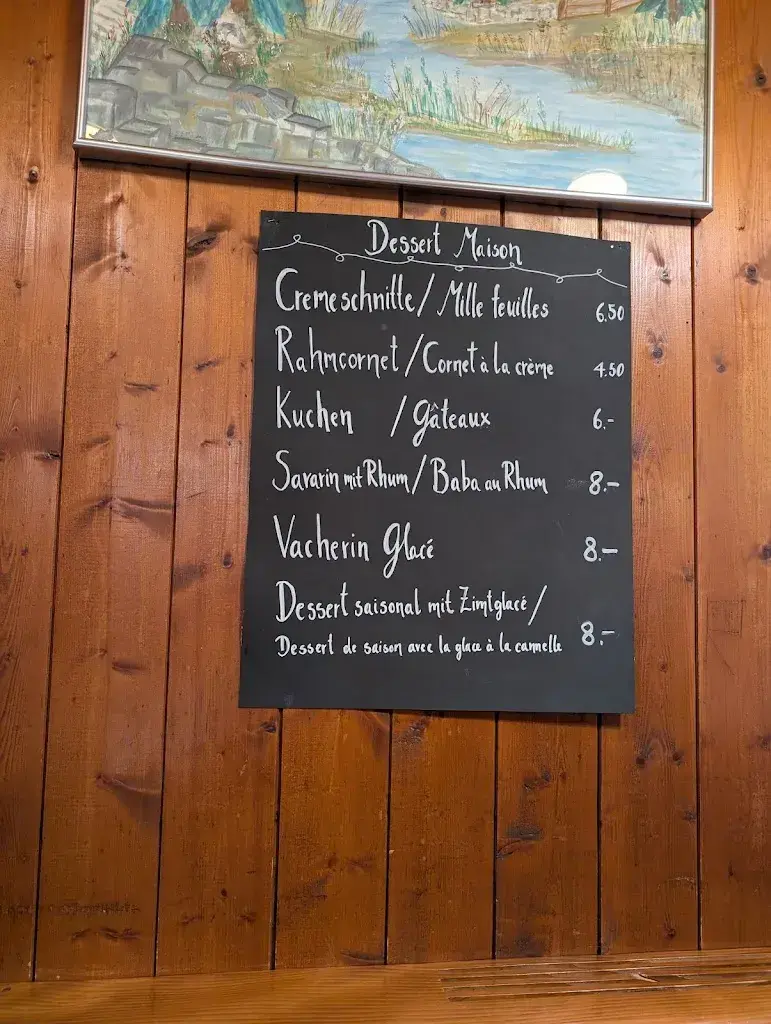 Dessert Maison
Cremeschnitte / Mille feuilles 6.50
Rahmcornet / Cornet à la crème 4.50
Kuchen / Gâteaux 6.-
Savarin mit Rhum / Baba au Rhum 8.-
Vacherin Glacé 8.-
Dessert saisonal mit Zimtglacé /
Dessert de saison avec la glace à la cannelle 8.-